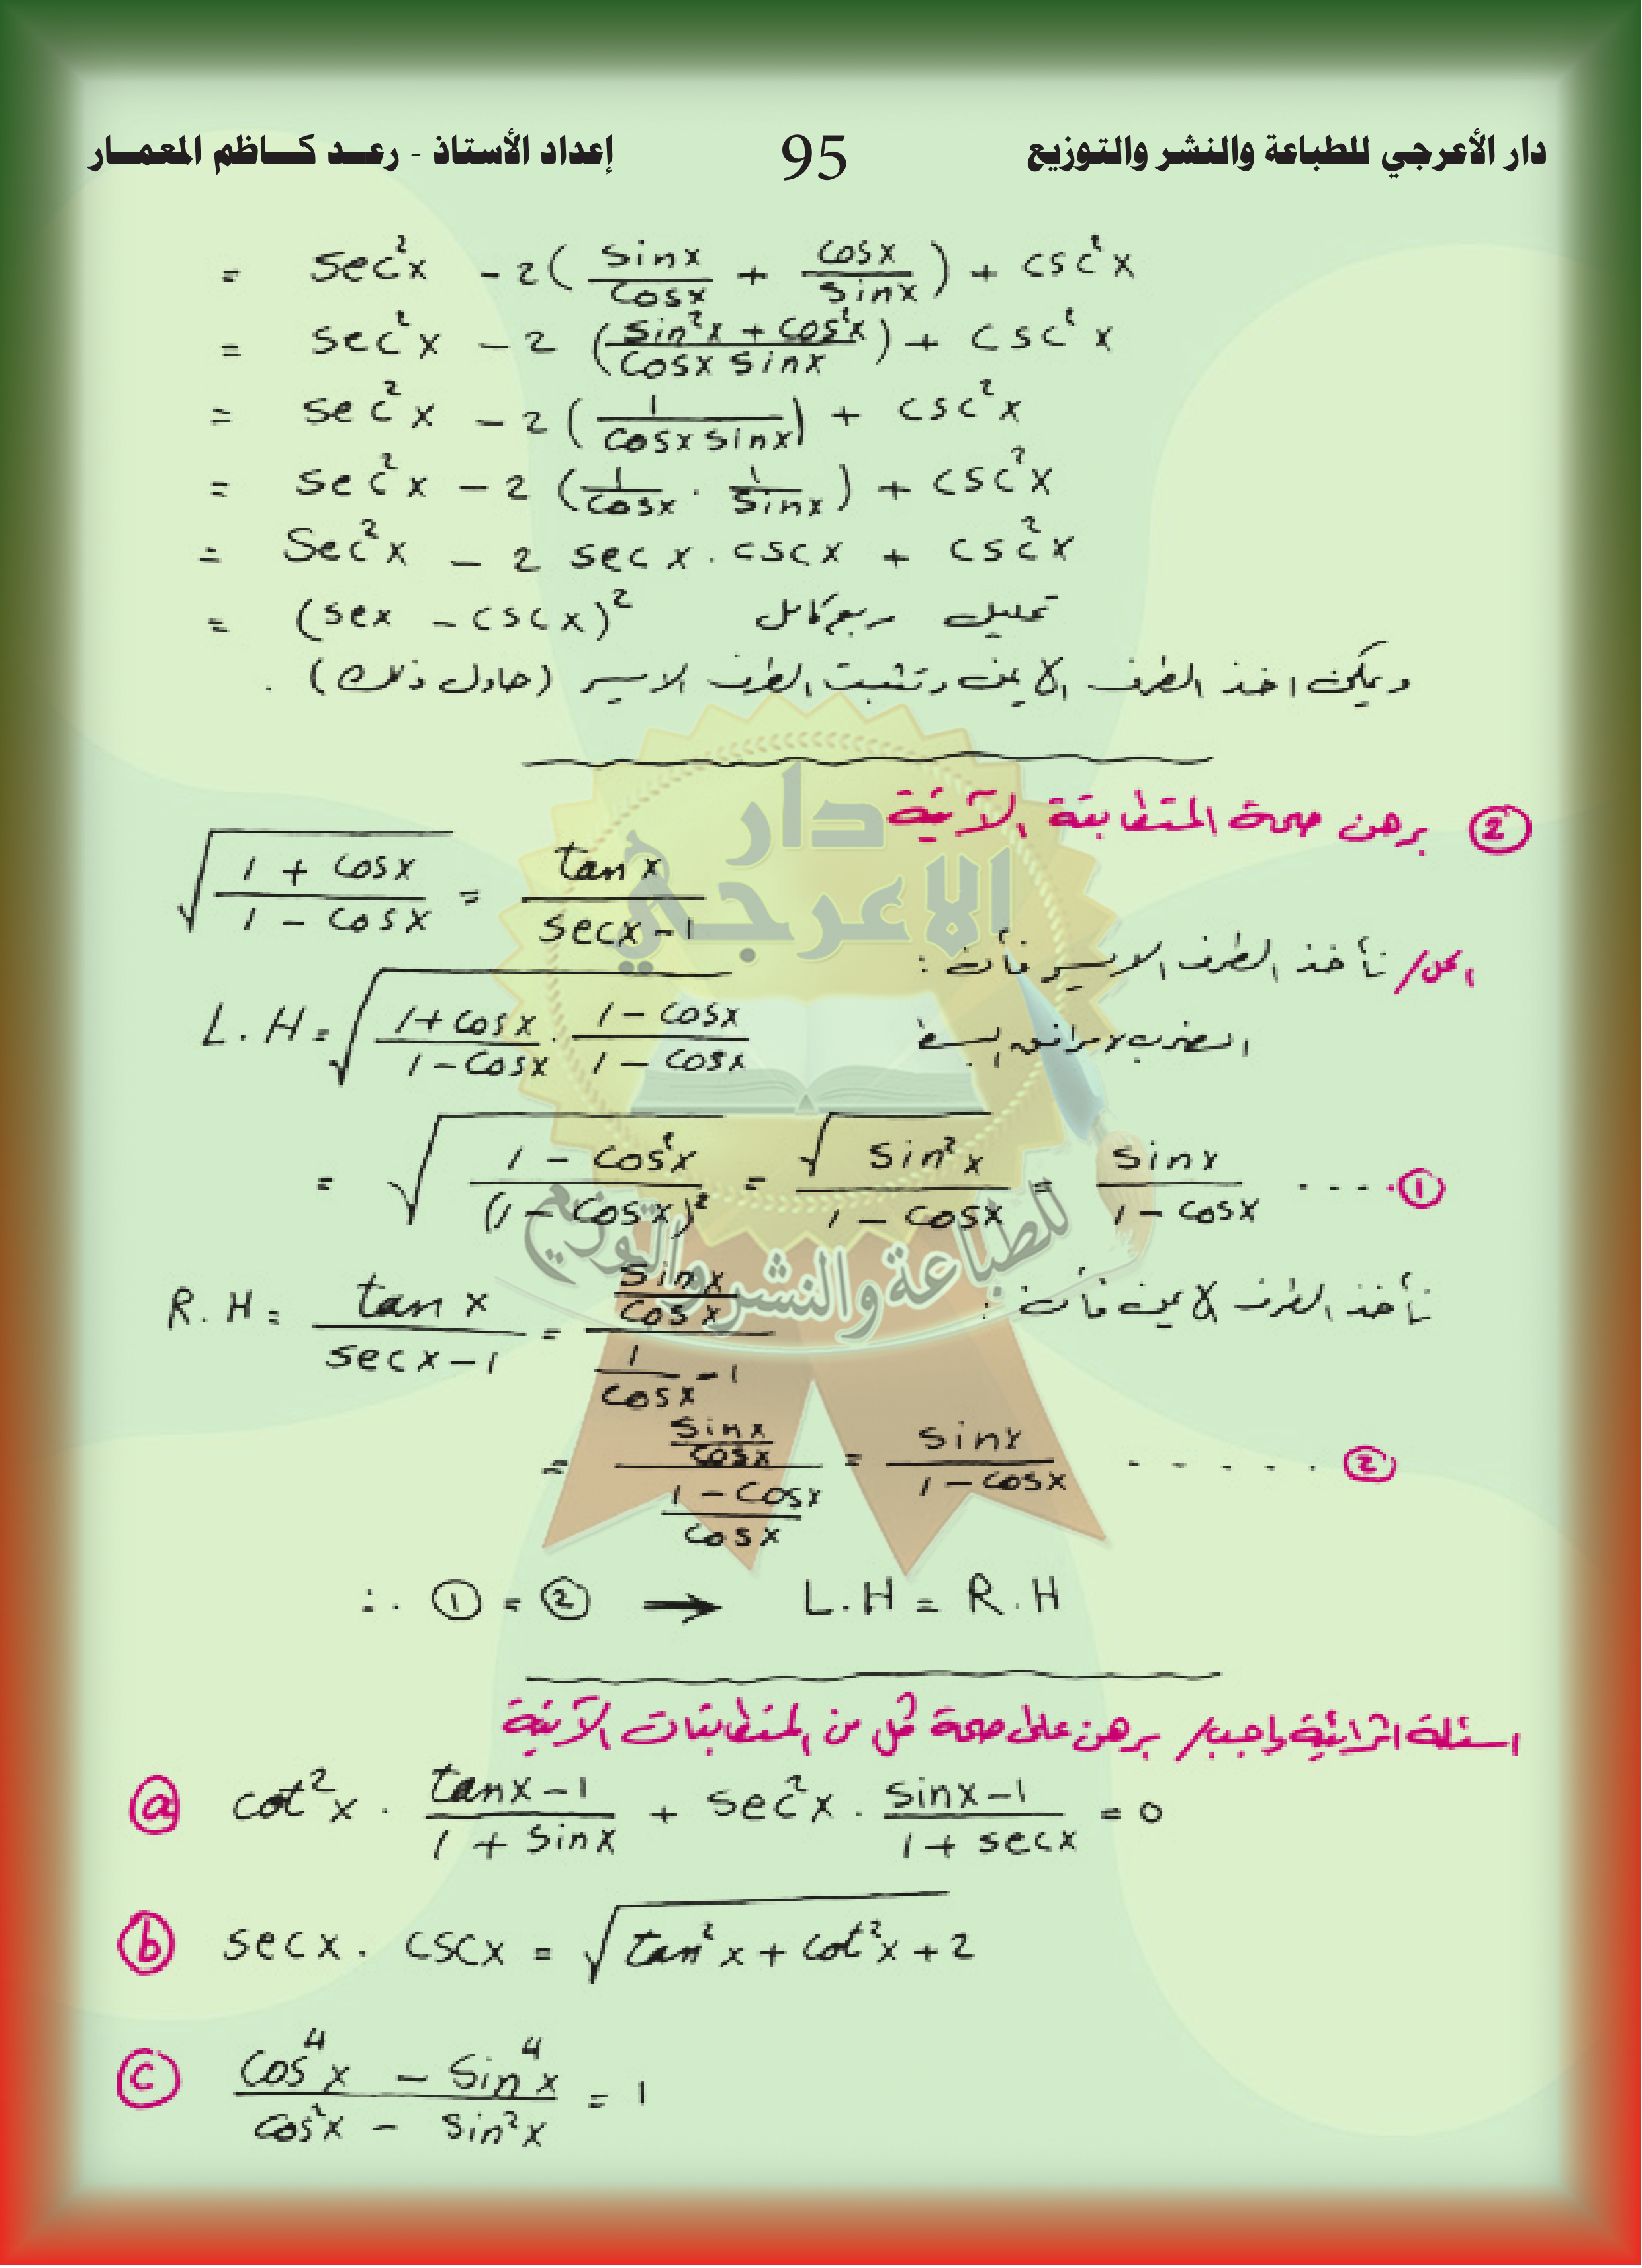 دار الأعرجي للطباعة والنشر والتوزيع 95 إعداد الأستاذ - رعـد كـاظم المعمـار
= sec²x - 2( sinx/cosx + cosx/sinx ) + csc²x
= sec²x - 2 ( (sin²x + cos²x)/(cosx sinx) ) + csc²x
= sec²x - 2 ( 1/(cosx sinx) ) + csc²x
= sec²x - 2 ( 1/cosx · 1/sinx ) + csc²x
= Sec²x - 2 secx . cscx + csc²x
= (sex - cscx)² تحليل مربع كامل
ويمكن اخذ الطرف الايمن وتثبت الطرف الايسر (حاول ذلك) .
② برهن صحة المتطابقة الآتية
√((1 + cosx)/(1 - cosx)) = tanx/(secx-1)
الحل/ نأخذ الطرف الايسر فأن :
L.H = √((1+cosx)/(1-cosx) · (1-cosx)/(1-cosx)) الضرب × مرافق البسط
= √((1 - cos²x)/(1 - cosx)²) = √(sin²x)/(1 - cosx) = sinx/(1 - cosx) .... ①
نأخذ الطرف الايمن فأن :
R.H = tanx/(secx-1) = (sinx/cosx)/(1/cosx - 1)
= (sinx/cosx)/((1 - cosx)/cosx) = sinx/(1 - cosx) ...... ②
∴ ① = ② → L.H = R.H
اسئلة اثرائية واجب/ برهن على صحة كل من المتطابقات الآتية
ⓐ cot²x . (tanx-1)/(1 + sinx) + sec²x . (sinx-1)/(1 + secx) = 0
ⓑ secx . cscx = √(tan²x + cot²x + 2)
ⓒ (cos⁴x - sin⁴x)/(cos²x - sin²x) = 1
دار
الاعرجي
للطباعة والنشر والتوزيع